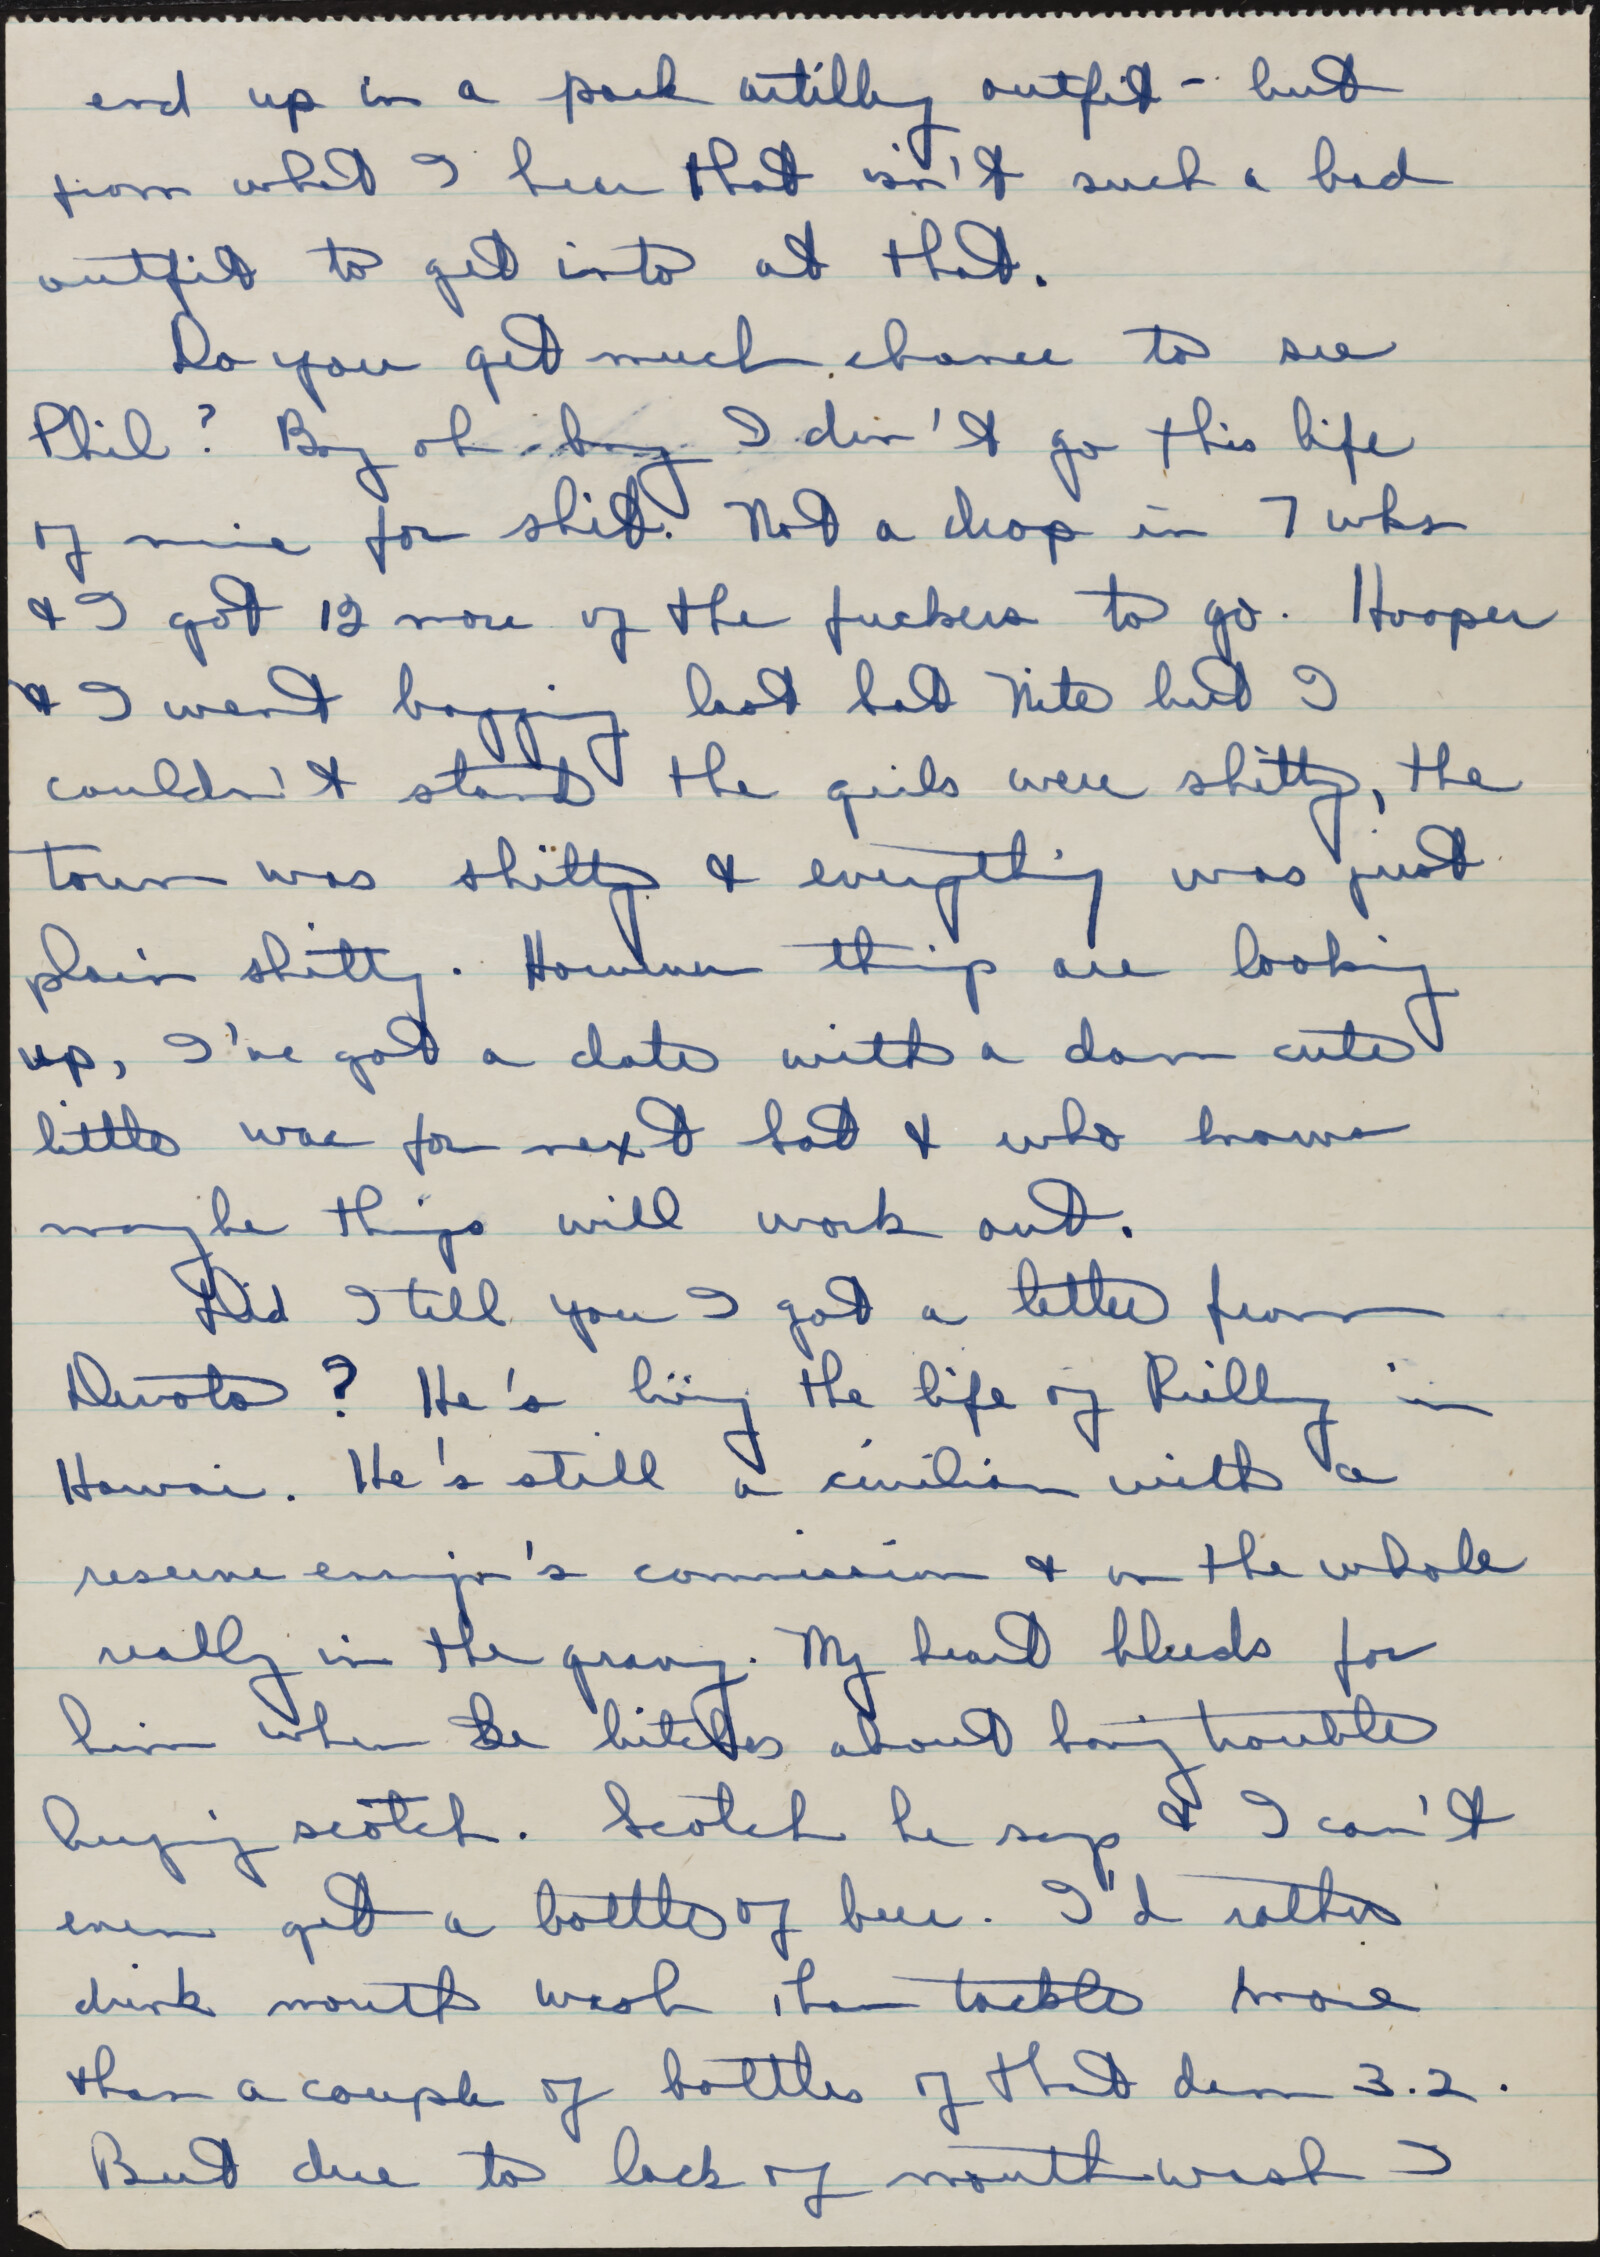 end up in a pack artillry outfit - but
from what I hear that isn't such a bad
outfit to get into at that.
Do you get much chance to see
Phil? Boy oh boy I don't go this life
of mine for shit. Not a drop in 7 wks
& I got 13 more of the fuckers to go. Hooper
& I went bagging last Sat Nite but I
couldn't stand the girls were shitty, the
town was shitty & everything was just
plain shitty. However things are looking
up, I've got a date with a dam cute
little wac for next Sat & who knows
maybe things will work out.
Did I tell you I got a letter from
Devoto? He's living the life of Rielly in
Hawai. He's still a civilian with a
reserve ensign's commission & on the whole
really in the gravy. My heart bleeds for
him when he bitches about having trouble
buying scotch. Scotch he says & I can't
even get a bottle of beer. I'd rather
drink mouth wash than tackle more
than a couple of bottles of that dam 3.2.
But due to lack of mouthwash I